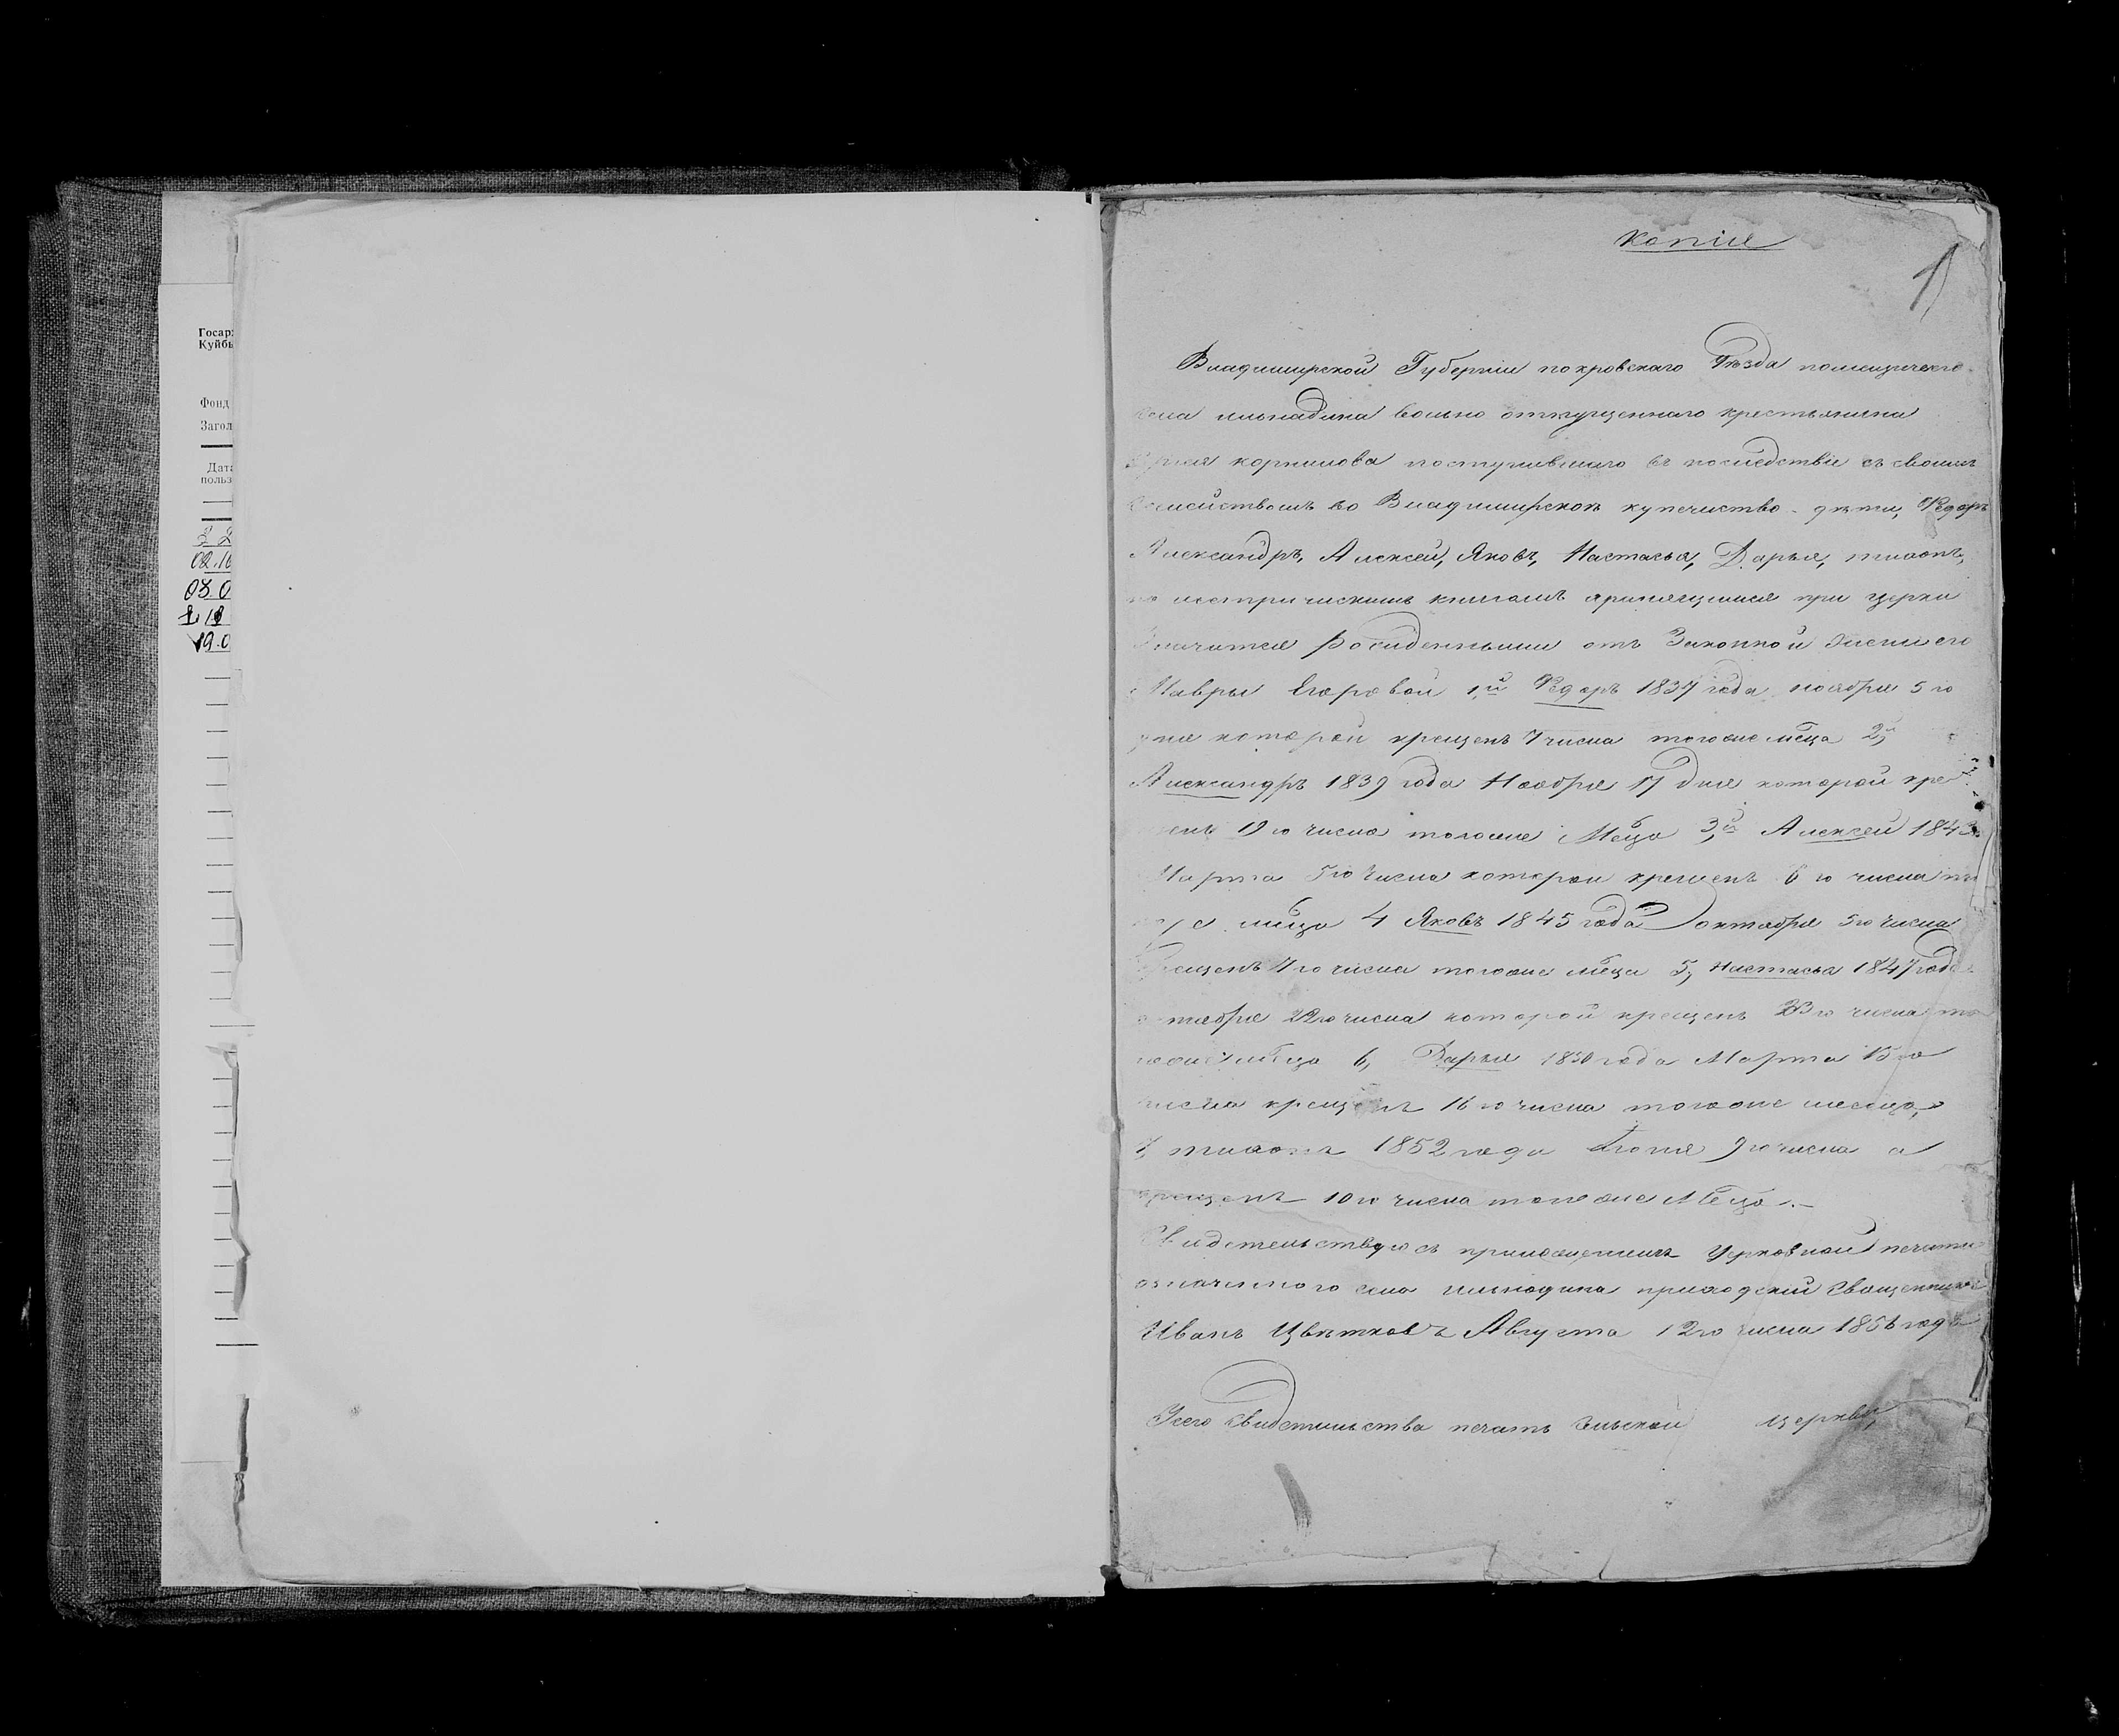 Госар
Куйбы
Фонд
Загол
Дата
польз
02.10
03.0
19.0
копія
1
Владимирской Губерніи покровскаго Уѣзда помещичьего
села ильнадина вольно отпущеннаго крестьянина
корнилова поступившаго въ последствіи съ своимъ
семействомъ во Владимирское купечиство - дѣти, Федоръ
Александръ, Алексей, Яковъ, Настасья, Дарья, тихонъ,
по метрическимъ книгамъ хранящимся при церкви
значится рожденными отъ Законной жены его
Мавры Егоровой 1,й Федоръ 1837 года ноября 5 го
дня которой крещенъ 7 числа тогоже мѣца 2,й
Александръ 1839 года Ноября 17 дня которой кре
щенъ 19 го числа тогоже Мѣца 3,й Алексей 184
Марта 5 го числа которой крещенъ 6 го числа то
же мѣца 4 Яковъ 1845 года октября 5 го числа
крещенъ 7 го числа тогоже мѣца 5, Настасья 1847 года
октября 22 го числа которой крещенъ 23 го числа то
гоже мѣца 6, Дарья 1850 года Марта 15 го
числа крещенъ 16 го числа тогоже месеца,
7, тихонъ 1852 года Июня 9 го числа а
крещенъ 10 го числа тогоже Мѣца.-
Свидетельствую съ приложениемъ Церковной печати
означенного села ильнадина приходский Священникъ
Иванъ Цвѣтковъ Августа 12 го числа 1856 года
У сего Свидетельства печать сельской церкви,